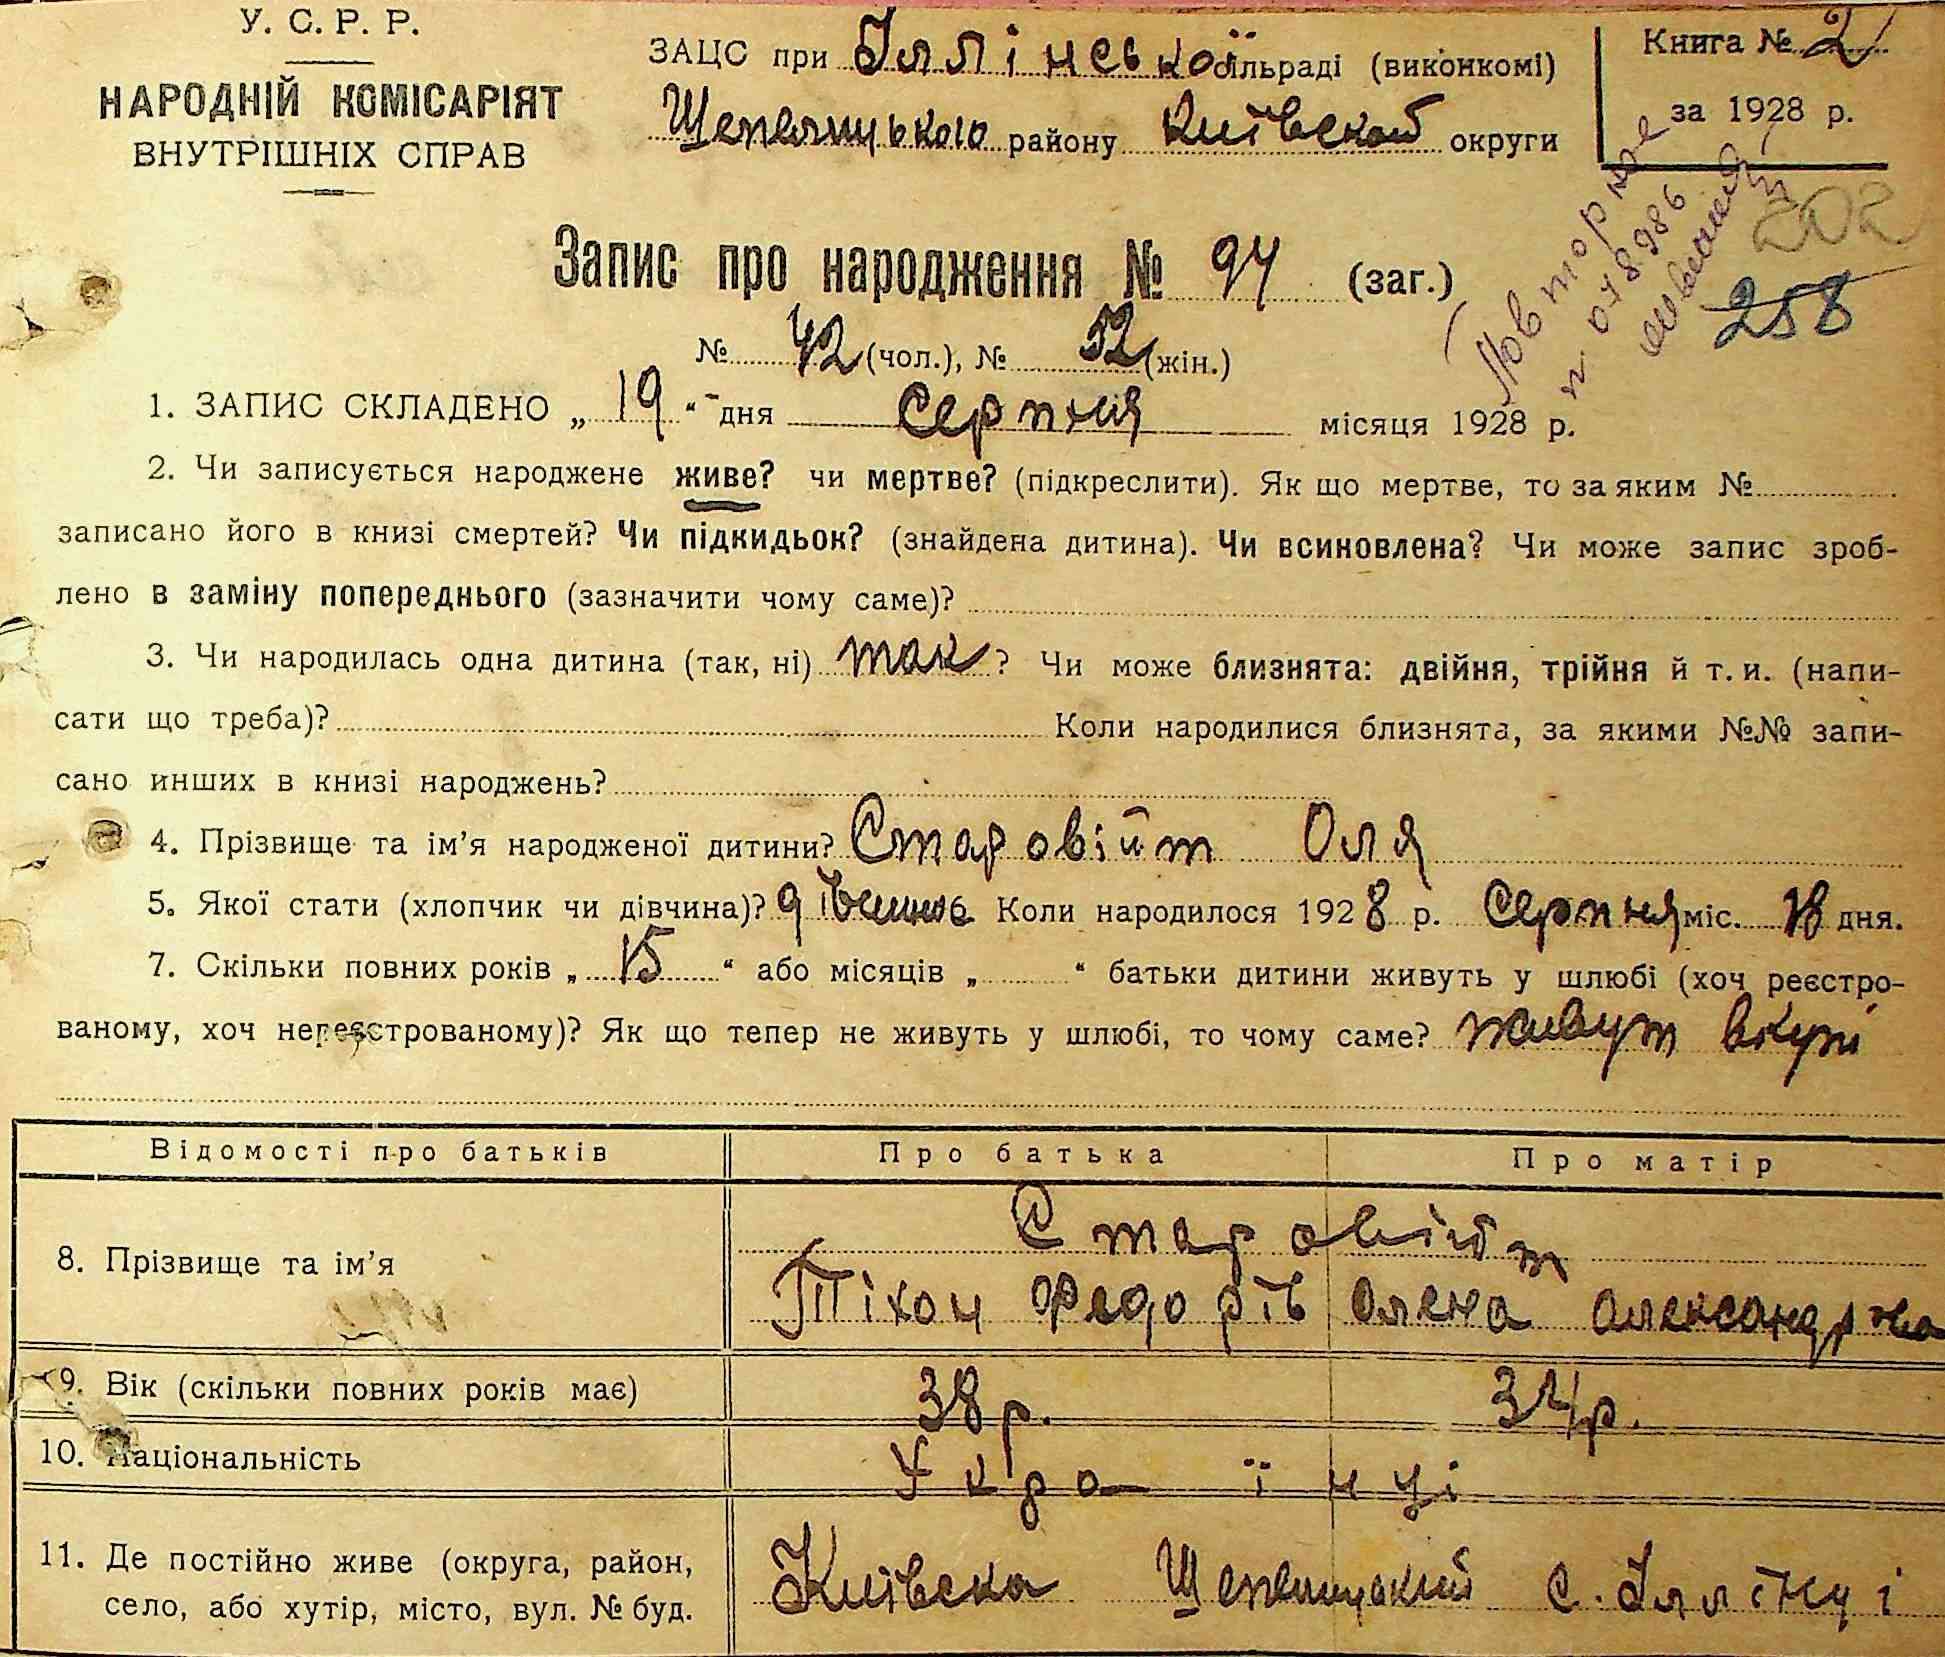 У. С. Р. Р.
НАРОДНІЙ КОМІСАРІЯТ
ВНУТРІШНІХ СПРАВ
ЗАЦС при Іллінської сільраді (виконкомі)
Шепелицького району Київской округи
Книга № 2
за 1928 р.
Повторное
202
258
Запис про народження № 94 (заг.)
№ 42 (чол.), № 52 (жін.)
1. ЗАПИС СКЛАДЕНО „ 19 “ дня Серпня місяця 1928 р.
2. Чи записується народжене живе? чи мертве? (підкреслити). Як що мертве, то за яким №
записано його в книзі смертей? Чи підкидьок? (знайдена дитина). Чи всиновлена? Чи може запис зроб-
лено в заміну попереднього (зазначити чому саме)?
3. Чи народилась одна дитина (так, ні) так ? Чи може близнята: двійня, трійня й т. и. (напи-
сати що треба)? Коли народилися близнята, за якими №№ запи-
сано инших в книзі народжень?
4. Прізвище та ім’я народженої дитини? Старовійт Оля
5. Якої стати (хлопчик чи дівчина)? Коли народилося 1928 р. Серпня міс. 18 дня.
7. Скільки повних років „ 15 “ або місяців „ “ батьки дитини живуть у шлюбі (хоч реєстро-
ваному, хоч нереєстрованому)? Як що тепер не живуть у шлюбі, то чому саме? живут вкупі
Відомості про батьків Про батька Про матір
8. Прізвище та ім’я Старовійт
Тіхон Федорів Олена Олександрівна
9. Вік (скільки повних років має) 38 р. 34 р.
10. Національність Українці
11. Де постійно живе (округа, район,
село, або хутір, місто, вул. № буд.
Київска Шепелицький с. Іллінці